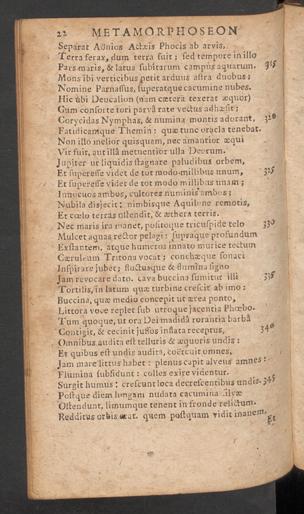 22 METAMORPHOSEON
Separat Aönios Actæis Phocis ab arvis.
Terra ferax, dum terra fuit; sed tempore in illo
Pars maris, & latus subitarum campus aquarum. 315
Mons ibi verticibus petit arduus astra duobus;
Nomine Parnassus, superatque cacumine nubes.
Hic ubi Deucalion (nam cætera texerat æquor)
Cum consorte tori parva rate vectus adhæsit;
Corycidas Nymphas, & numina montis adorant, 320
Fatidicamque Themin: quæ tunc oracla tenebat.
Non illo melior quisquam, nec amantior æqui
Vir fuit, aut illâ metuentior ulla Deorum.
Jupiter ut liquidis stagnare paludibus orbem,
Et superesse videt de tot modo millibus unum, 325
Et superesse videt de tot modo millibus unam;
Innocuos ambos, cultores numinis ambos;
Nubila disjecit: nimbisque Aquilone remotis,
Et cœlo terras ostendit, & æthera terris.
Nec maris ira manet, positoque tricuspide telo 330
Mulcet aquas rector pelagi: supraque profundum
Exstantem, atque humeros innato murice tectum
Cæruleum Tritona vocat; conchæque sonaci
Inspirare jubet; fluctusque & flumina signo
Jam revocare dato. cava buccina sumitur illi 335
Tortilis, in latum quæ turbine crescit ab imo:
Buccina, quæ medio concepit ut æra ponto,
Littora voce replet sub utroque jacentia Phœbo.
Tum quoque, ut ora Dei madidâ rorantia barbâ
Contigit, & cecinit jussos inflata receptus, 340
Omnibus audita est telluris & æquoris undis:
Et quibus est undis audita, coërcuit omnes.
Jam mare littus habet: plenus capit alveus amnes:
Flumina subsidunt: colles exire videntur.
Surgit humus: crescunt loca decrescentibus undis. 345
Postque diem longam nudata cacumina silvæ
Ostendunt, limumque tenent in fronde relictum.
Redditus orbis erat. quem postquam vidit inanem,
Et